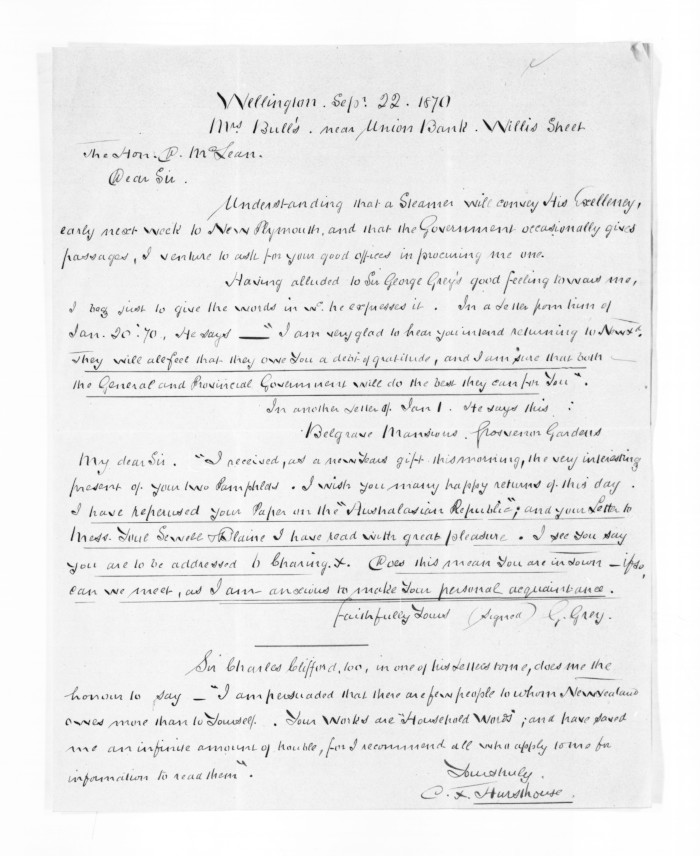 Wellington. Sepr. 22. 1870
Mrs Bull's. near Union Bank. Willis Street
The Hon. D. McLean.
Dear Sir.
Understanding that a Steamer will convey His Excellency,
early next week to New Plymouth, and that the Government occasionally gives
passages, I venture to ask for your good offices in procuring me one.
Having alluded to Sir George Grey's good feeling towars me,
I beg just to give the words in wh. he expresses it. In a Letter from him of
Jan. 20. '70, He says — "I am very glad to hear you intend returning to New Zd.
They will all feel that they owe You a debt of gratitude, and I am sure that both
the General and Provincial Government will do the best they can for You".
In another Letter of Jan 1. He says this :
Belgrave Mansions. Grosvenor Gardens
My dear Sir. "I received, as a new Years gift this morning, the very interesting
present of your two Pamphlets. I wish you many happy returns of this day.
I have reperused your Paper on the "Australasian Republic"; and your Letter to
Mess. Youl Sewell & Blaine I have read with great pleasure. I see You say
You are to be addressed to Charing X. Does this mean You are in town — if so,
can we meet, as I am anxious to make Your personal acquaintance.
Faithfully Yours (signed) G. Grey.
Sir Charles Clifford, too, in one of his Letters to me, does me the
honour to say — "I am persuaded that there are few people to whom New Zealand
owes more than to Yourself. Your Works are "Household Words"; and have saved
me an infinite amount of trouble, for I recommend all who apply to me for
information to read them".
Yours truly.
C. F. Hursthouse.